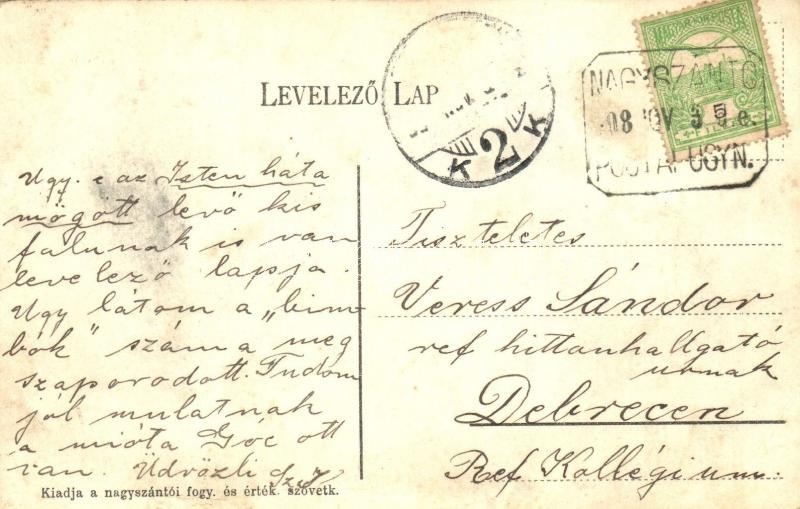 LEVELEZŐ LAP
K 2 K
NAGYSZÁNTÓ
908 NOV 3
POSTAI ÜGYN.
5
Ugy-e az Isten háta
mögött levő kis
falunak is van
levelező lapja.
Ugy látom a „bim-
bók" száma meg
szaporodott. Tudom
jól mulatnak
a mióta Góc ott
van. Üdvözli
Tiszteletes
Veress Sándor
ref hittanhallgató
urnak
Debrecen
Ref Kollégium.
Kiadja a nagyszántói fogy. és érték. szövetk.